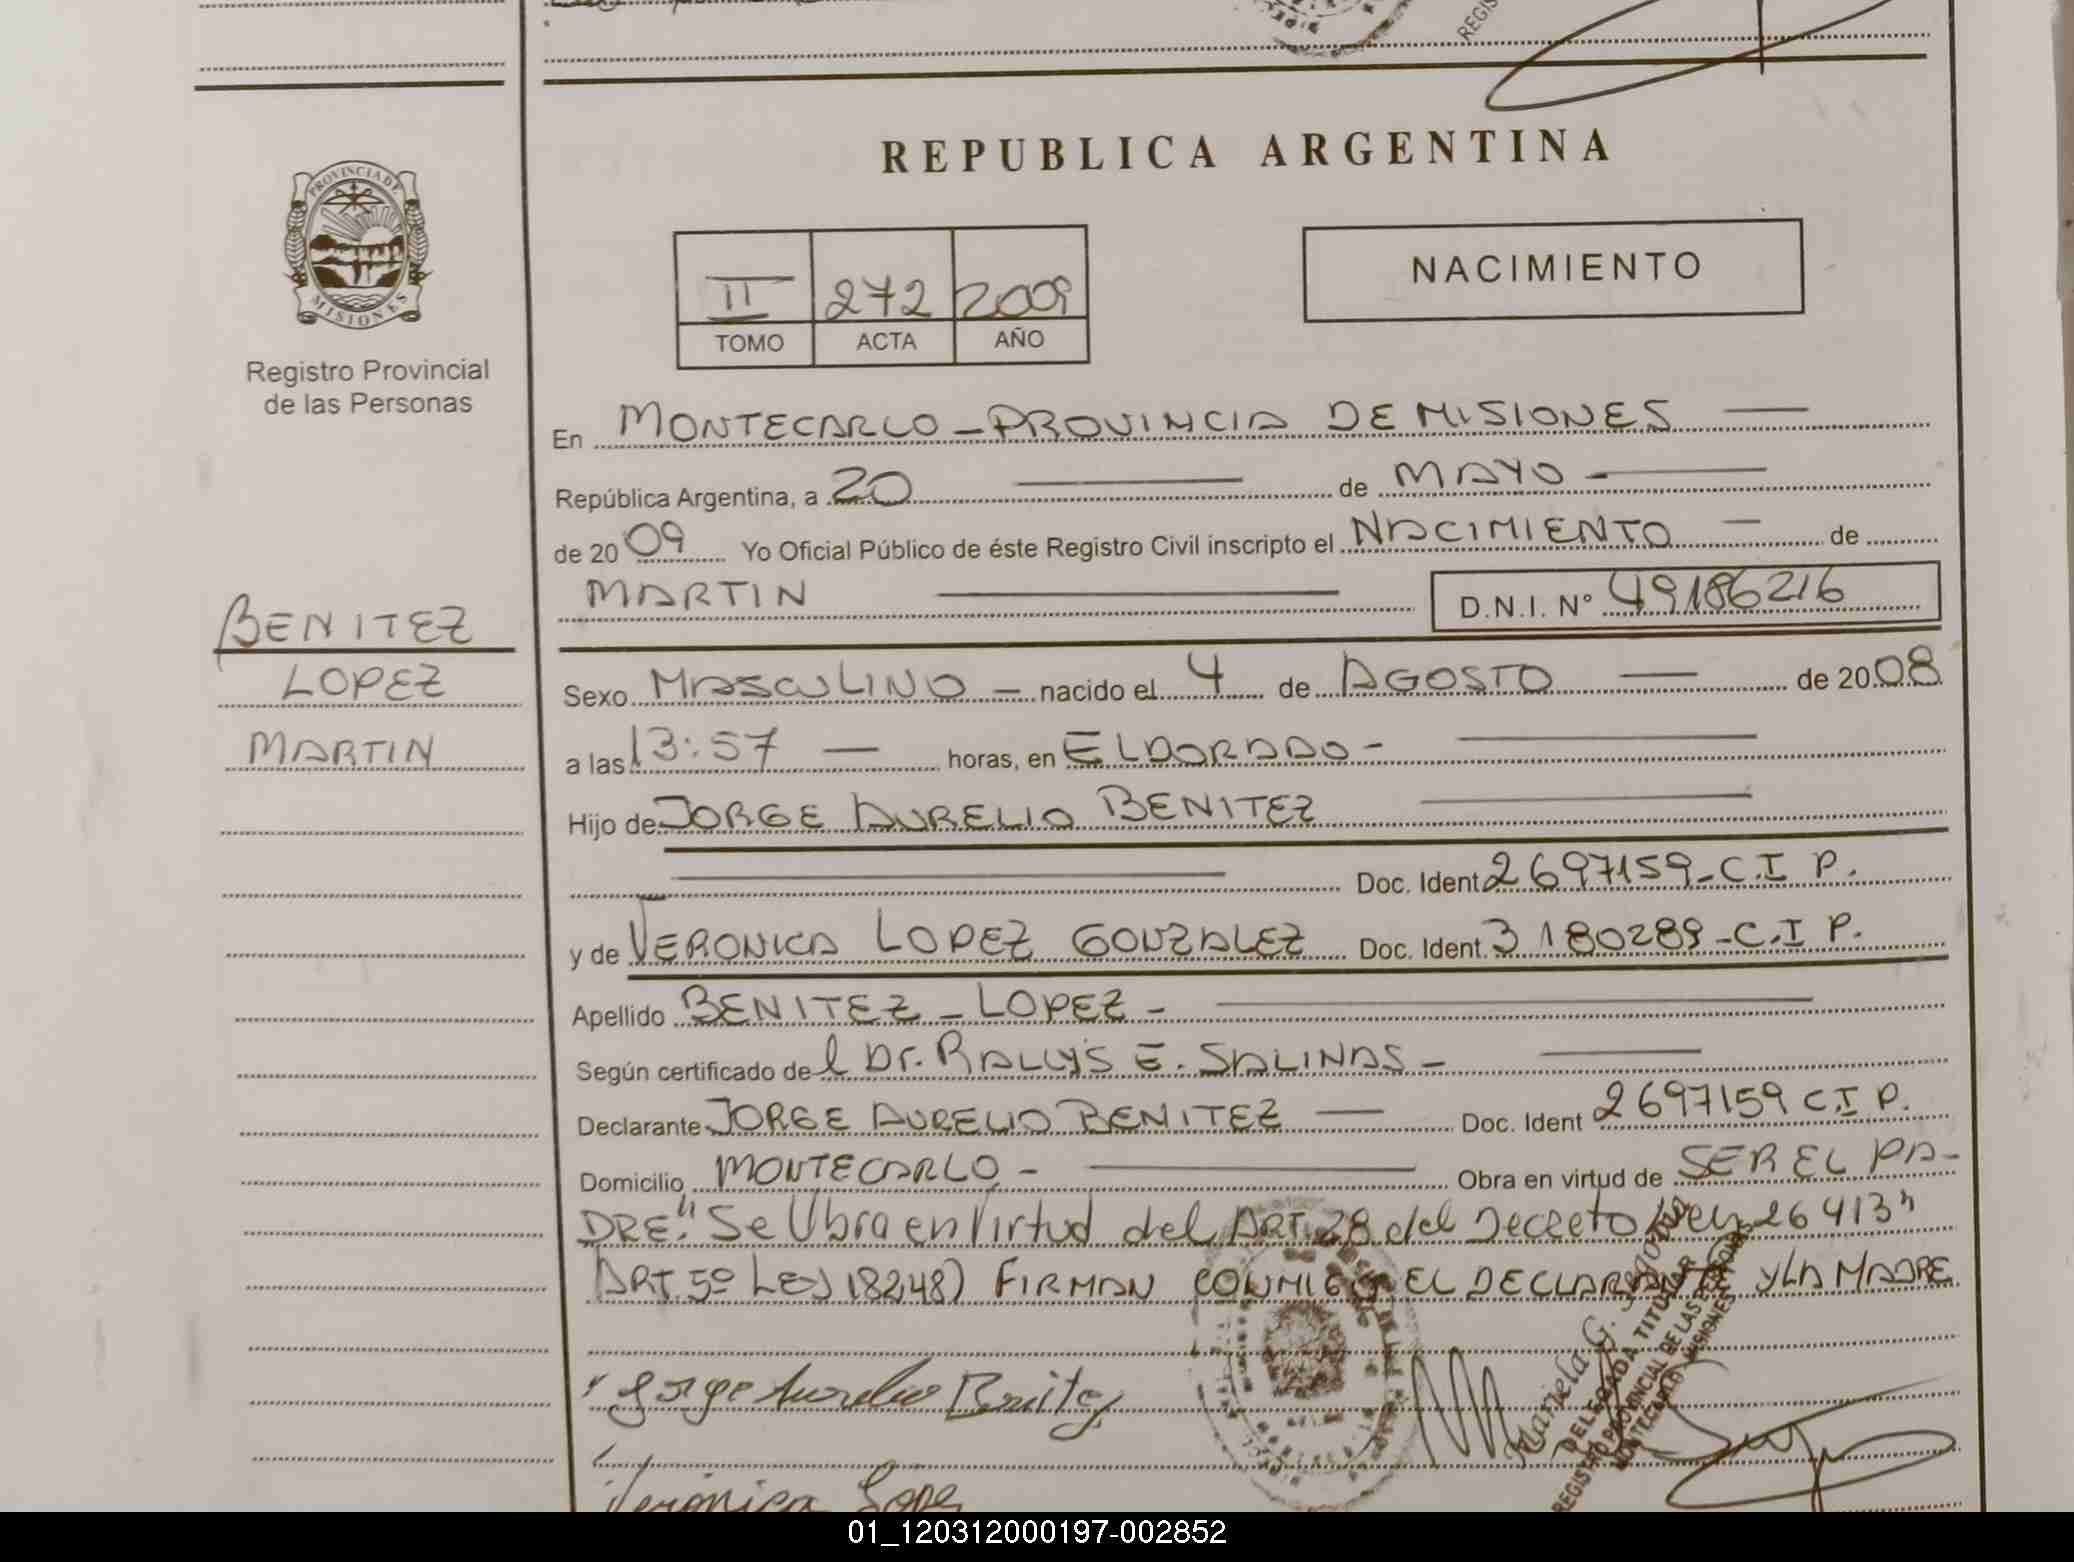 REPUBLICA ARGENTINA
PROVINCIA DE
MISIONES
Registro Provincial
de las Personas
II 272 2009
TOMO ACTA AÑO
NACIMIENTO
En MONTECARLO - PROVINCIA DE MISIONES —
República Argentina, a 20 — de MAYO —
de 2009 Yo Oficial Público de éste Registro Civil inscripto el NACIMIENTO — de
MARTIN — D.N.I. N° 49186216
BENITEZ
LOPEZ
MARTIN
Sexo MASCULINO — nacido el 4 de AGOSTO — de 2008
a las 13:57 — horas, en ELDORADO - —
Hijo de JORGE AURELIO BENITEZ —
— Doc. Ident 2697159 - C.I P.
y de VERONICA LOPEZ GONZALEZ Doc. Ident. 3180289 - C.I P.
Apellido BENITEZ - LOPEZ - —
Según certificado de l Dr. RALLYS E. SALINAS - —
Declarante JORGE AURELIO BENITEZ — Doc. Ident 2697159 C.I P.
Domicilio MONTECARLO - — Obra en virtud de SER EL PA-
DRE." Se Obra en Virtud del ART. 28 del Decreto Ley 26413"
ART. 5º LEY 18248) FIRMAN CONMIGO EL DECLARANTE Y LA MADRE
Jorge Aurelio Benitez
Mariela G.
DELEGADA TITULAR
REGISTRO PROVINCIAL DE LAS PERSONAS
MONTECARLO MISIONES
Veronica Lopez
01_120312000197-002852